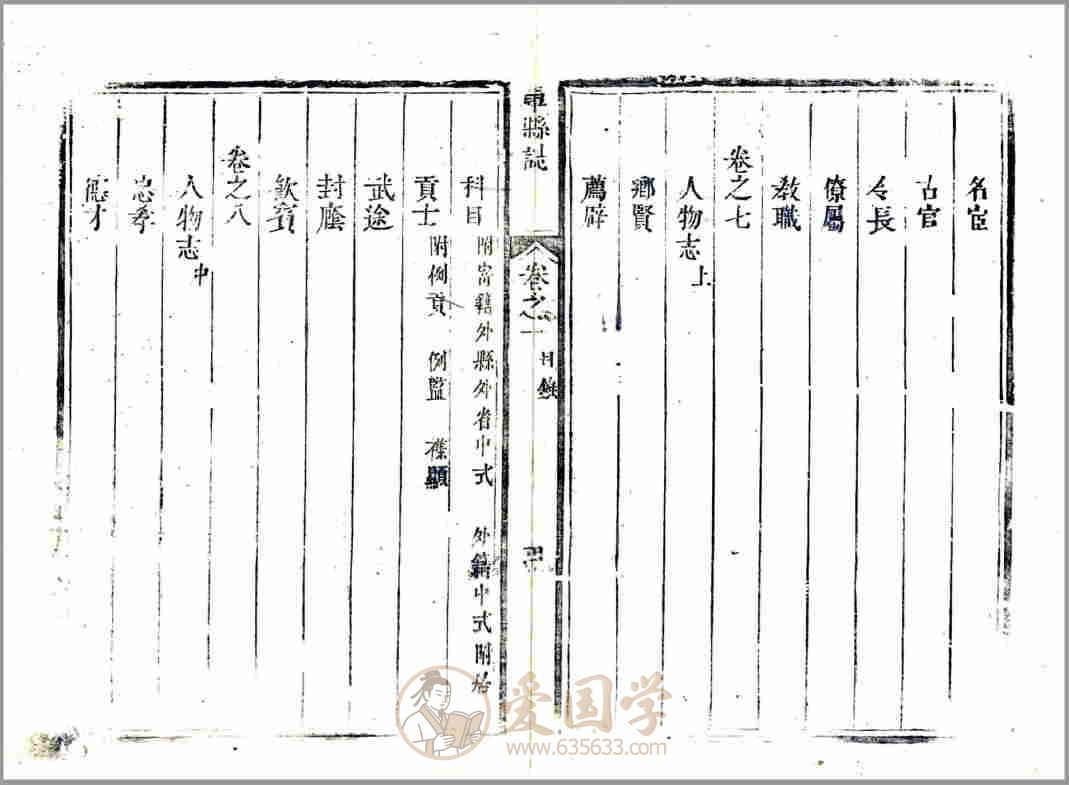 名宦
古官
令長
僚屬
敎職
卷之七
人物志上
鄕賢
薦辟
縣誌 卷之一 目錄
科目 附寄籍外縣外省中式 外籍中式附
貢士 附例貢 例監 襍顯
武途
封廕
欽賓
卷之八
人物志中
忠孝
爱国学
www.635633.com